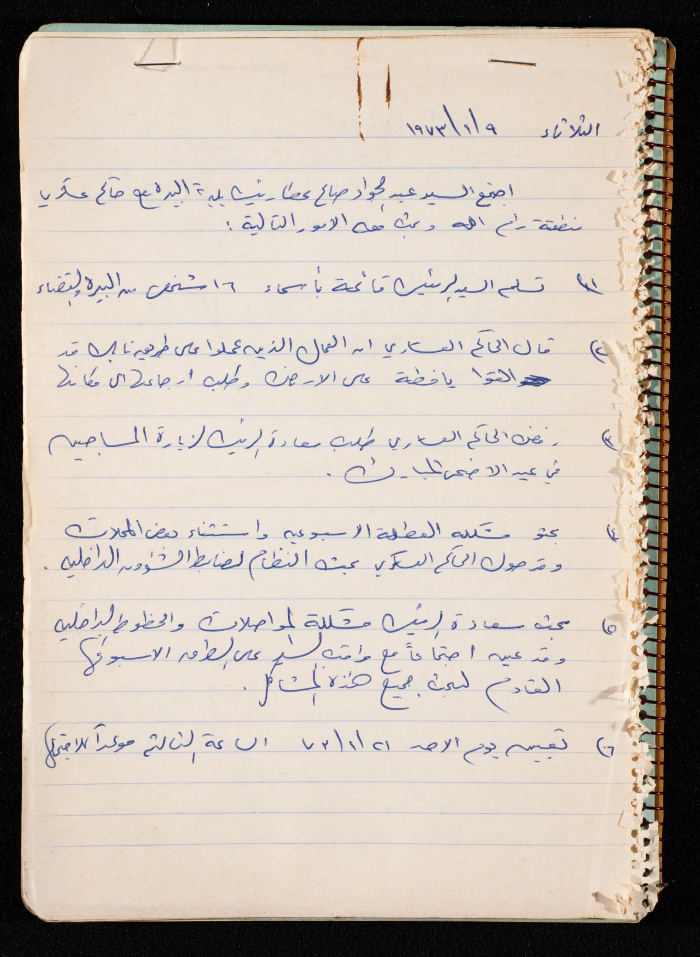 الثلاثاء ٩/١/١٩٧٣
اجتمع السيد عبد الجواد صالح عطا رئيس بلدية البيرة مع حاكم عسكري
منطقة رام الله وبحث معه الامور التالية :
١) تسلم السيد الرئيس قائمة بأسماء ١٦ شخص من البيرة والقضاء
٢) قال الحاكم العسكري ان العمال الذين عملوا على طريق نابلس قد
القوا يافطة على الارض وطلب ارجاعها الى مكانها
٣) رفض الحاكم العسكري طلب سعادة الرئيس لزيارة المساجين
في عيد الاضحى المبارك .
٤) بحث مشكلة العطلة الاسبوعية واستثناء بعض المحلات
وقد حول الحاكم العسكري بحث النظام لضابط الشؤون الداخلية .
٥) بحث سعادة الرئيس مشكلة المواصلات والخطوط الداخلية
وقد عين اجتماعا مع مراقب السير على الطرق الاسبوع
القادم لبحث جميع هذه المشاكل .
٦) تعيين يوم الاحد ٢١/١/٧٣ الساعة الثالثة موعداً للاجتماع